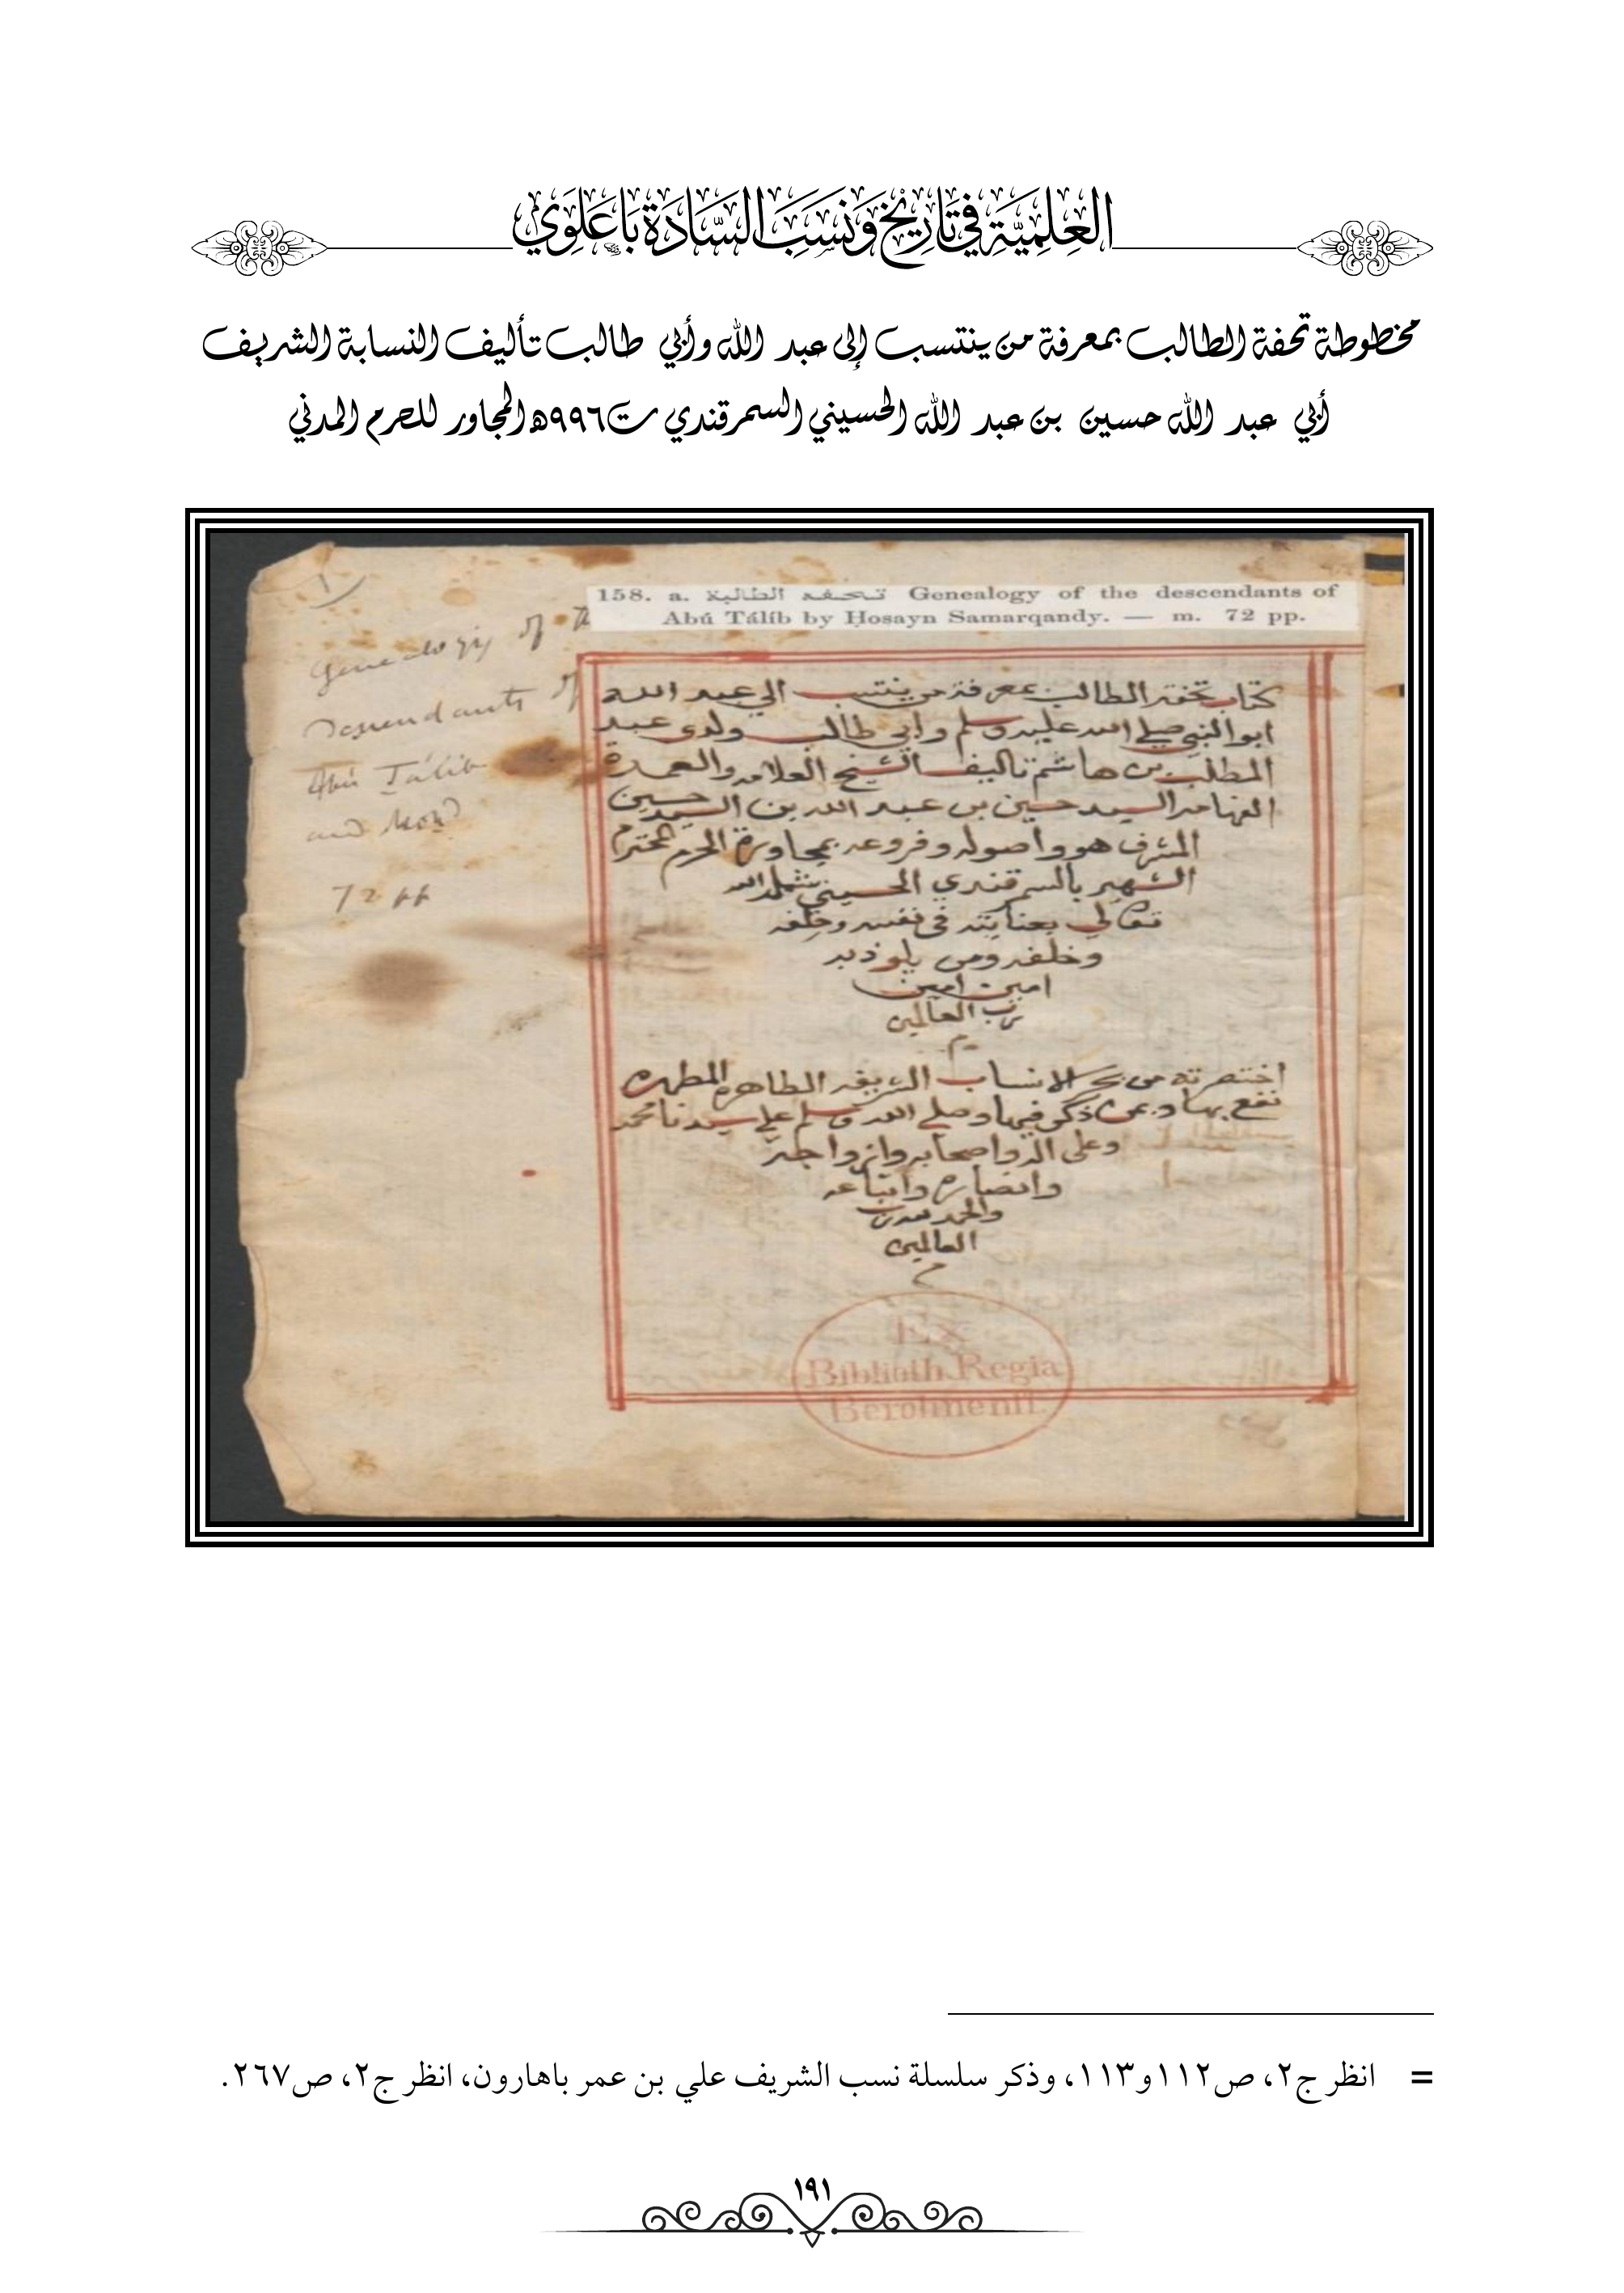 العِلمِيَّة في تَاريخ وَنَسَبِ السَّادَة بَاعَلَوي
مخطوطة تحفة الطالب بمعرفة من ينتسب إلى عبد الله وأبي طالب تأليف النسابة الشريف
أبي عبد الله حسين بن عبد الله الحسيني السمرقندي ت٩٩٦ه المجاور للحرم المدني
158. a. تحفه الطالبة Genealogy of the descendants of
Abú Tálíb by Ḥosayn Samarqandy. — m. 72 pp.
١
Genealogy of the
Descendants of
Abú Tálib
and
72 pp
كتاب تحفة الطالب بمعرفة من ينتسب الي عبد الله
ابو النبي صلي الله عليه وسلم وابي طالب ولدى عبد
المطلب بن هاشم تاليف الشيخ العلامه والعمدة
الفهامه السيد حسين بن عبد الله بن السيد حسين
المشرف هو واصوله وفروعه بمجاورة الحرم المحترم
الشهير بالسمرقندي الحسيني شمله الله
تعالي بعنايته في نفسه وخلفه
وخلفه ومن يلوذ به
امين امين
رب العالمين
م
اختصرته من بحر الانساب الشريفه الطاهره المطهره
نفع بها وبمن ذكر فيها وصلي الله وسلم علي سيدنا محمد
وعلى اله واصحابه وازواجه
وانصاره واتباعه
والحمد لله رب
العالمين
م
Ex
Biblioth. Regia
Berolinenſi.
= انظر ج٢، ص١١٢و١١٣، وذكر سلسلة نسب الشريف علي بن عمر باهارون، انظر ج٢، ص٢٦٧.
١٩١